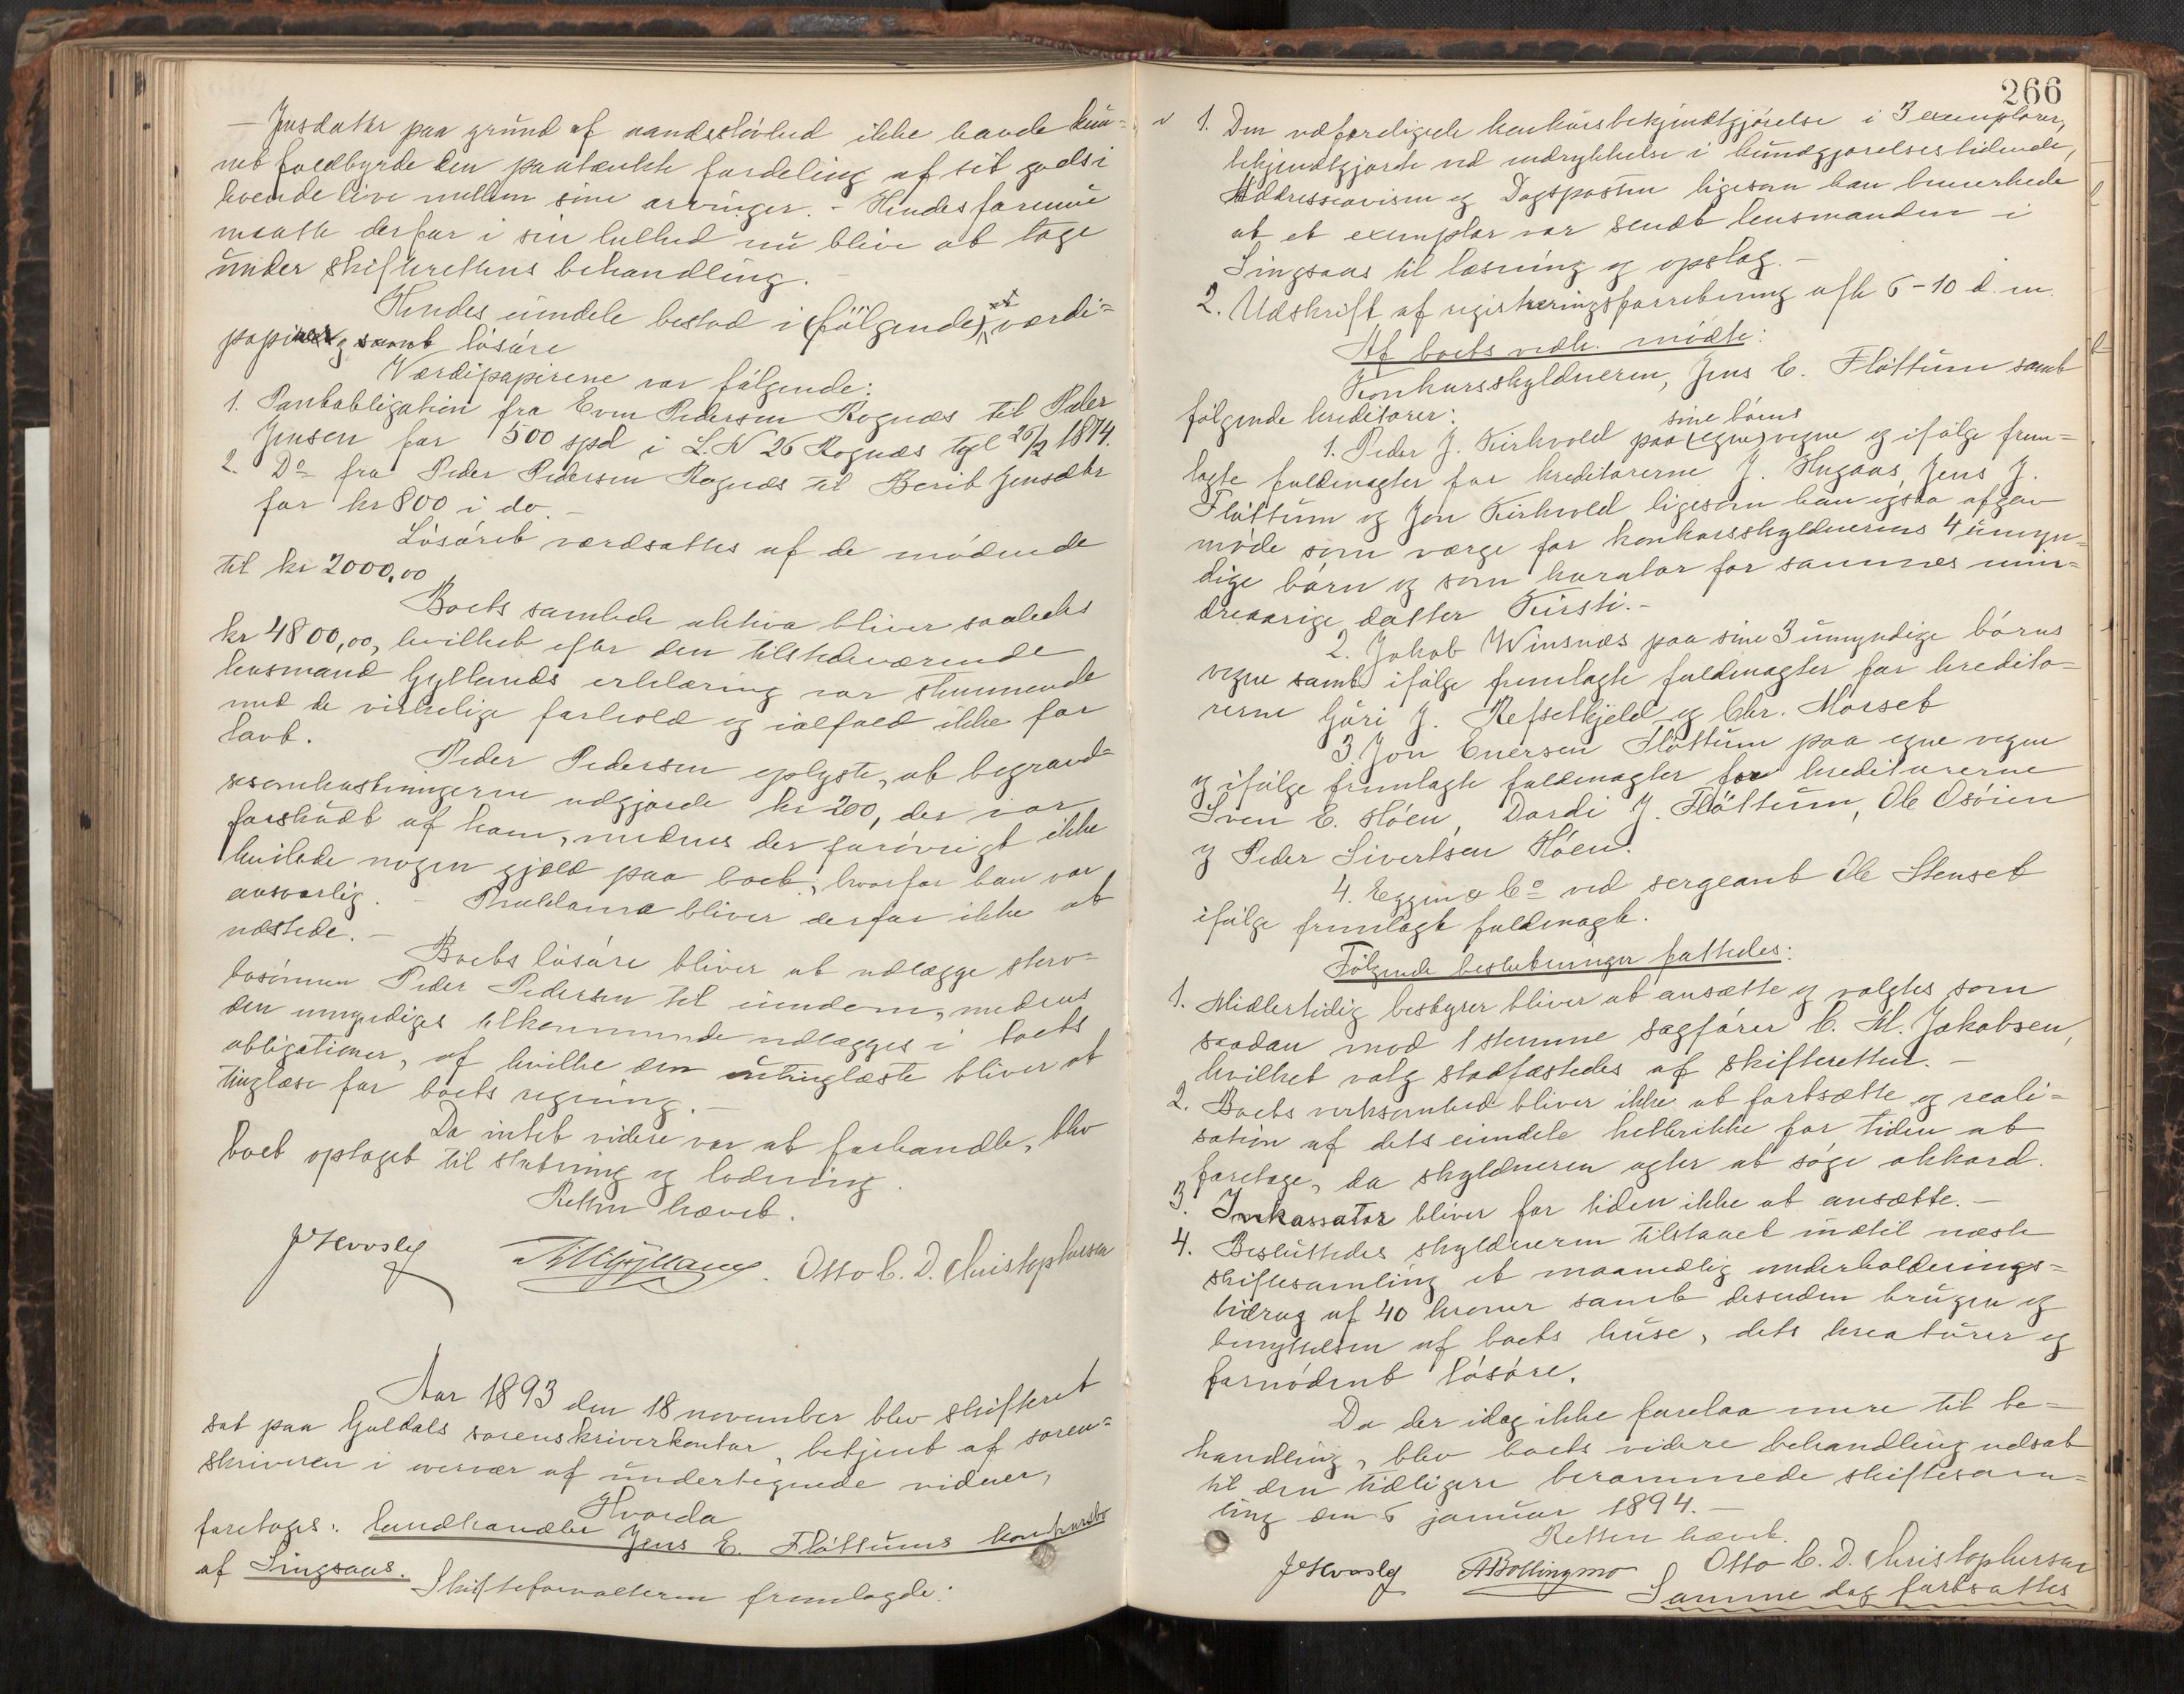 - Jensdatter paa grund af aandssløvhed ikke havde kun=
net fuldbyrde den paatænkte fordeling af sit gods i
levende live mellem sine arvinger. - Hendes formue
maatte derfor i sin helhed nu blive at tage
under skifterettens behandling. -
Hendes eiendele bestod i (følgende) værdi=
papirer og samt løsøre
Værdipapirene var følgende:
1. Pantobligation fra Even Pedersen Rognæs til Peder
Jensen for 500 spd i L.N 26 Rognæs tgl 26/2 1874.
2. Do fra Peder Pedersen Rognæs til Berit Jensdtr
for kr 800 i do. -
Løsøret værdsattes af de mødende
til kr 2000,00
Boets samlede aktiva bliver saaledes
kr 4800,00, hvilket efter den tilstedeværende
lensmand Gyllands erklæring var stemmende
med de virkelige forhold og ialfald ikke for
lavt.
Peder Pedersen oplyste, at begravel=
sesomkostningerne udgjorde kr 200, der var
forskudt af ham, medens der forøvrigt ikke
hvilede nogen gjæld paa boet, hvorfor han var
ansvarlig. - Proklama bliver derfor ikke at
udstede. -
Boets løsøre bliver at udlægge sterv=
bosønnen Peder Pedersen til eiendom, medens
den umyndiges tilkommende udlægges i boets
obligationer, af hvilke den utinglæste bliver at
tinglæse for boets regning. -
Da intet videre var at forhandle, blev
boet optaget til slutning og lodning.
Retten hævet.
Otto C. D. Christophersen
Aar 1893 den 18 november blev skifteret
sat paa Guldals sorenskriverkontor, betjent af soren=
skriveren i overvær af undertegnede vidner,
Hvorda
foretoges: landhandler Jens E. Fløttums konkursbo
af Singsaas.
Skifteforvalteren fremlagde:
266
1. Den udfærdigede konkursbekjendtgjørelse i 3 exemplarer,
bekjendtgjorte ved indrykkelse i kundgjørelsestidende,
Addresseavisen og Dagsposten ligesom han bemerkede
at et exemplar var sendt lensmanden i
Singsaas til læsning og opslag. -
2. Udskrift af registreringsforretning afh 6-10 d. m.
Af boets vedk. mødte:
Konkursskyldneren, Jens E. Fløttum samt
følgende kreditorer:
sine børns
1. Peder J. Kirkvold paa (egne) vegne og ifølge frem=
lagte fuldmagter for kreditorerne J. Hugaas, Jens J.
Fløttum og Jon Kirkvold ligesom han ogsaa afgav
møde som værge for konkursskyldnerens 4 umyn=
dige børn og som kurator for sammes min=
dreaarige datter Kirsti. -
2. Jakob Winsnæs paa sine 3 umyndige børns
vegne samt ifølge fremlagte fuldmagter for kredito=
rerne Guri J. Refsetkjeld og Chr. Morset
3. Jon Enersen Fløttum paa egne vegne
og ifølge fremlagte fuldmagter for kreditorerne
Sven E. Høen, Dordi J. Fløttum, Ole Osøien
og Peder Sivertsen Høen.
4. Eggen & Co ved sergeant Ole Stenset
ifølge fremlagt fuldmagt.
Følgende beslutninger fattedes:
1. Midlertidig bestyrer bliver at ansætte og valgtes som
saadan mod 1 stemme sagfører C. M. Jakobsen,
hvilket valg stadfæstedes af skifteretten. -
2. Boets virksomhed bliver ikke at fortsætte og reali=
sation af dets eiendele hellerikke for tiden at
foretage, da skyldneren agter at søge akkord.
3. Inkassator bliver for tiden ikke at ansætte. -
4. Besluttedes skyldneren tilstaaet indtil næste
skiftesamling et maanedlig underholdnings=
bidrag af 40 kroner samt desuden brugen og
benyttelsen af boets huse, dets kreaturer og
fornødent løsøre.
Da der idag ikke forelaa mere til be=
handling, blev boets videre behandling udsat
til den tidligere berammede skiftesam=
ling den 6 januar 1894. -
Retten hævet.
Otto C. D. Christophersen
Samme dag fortsattes